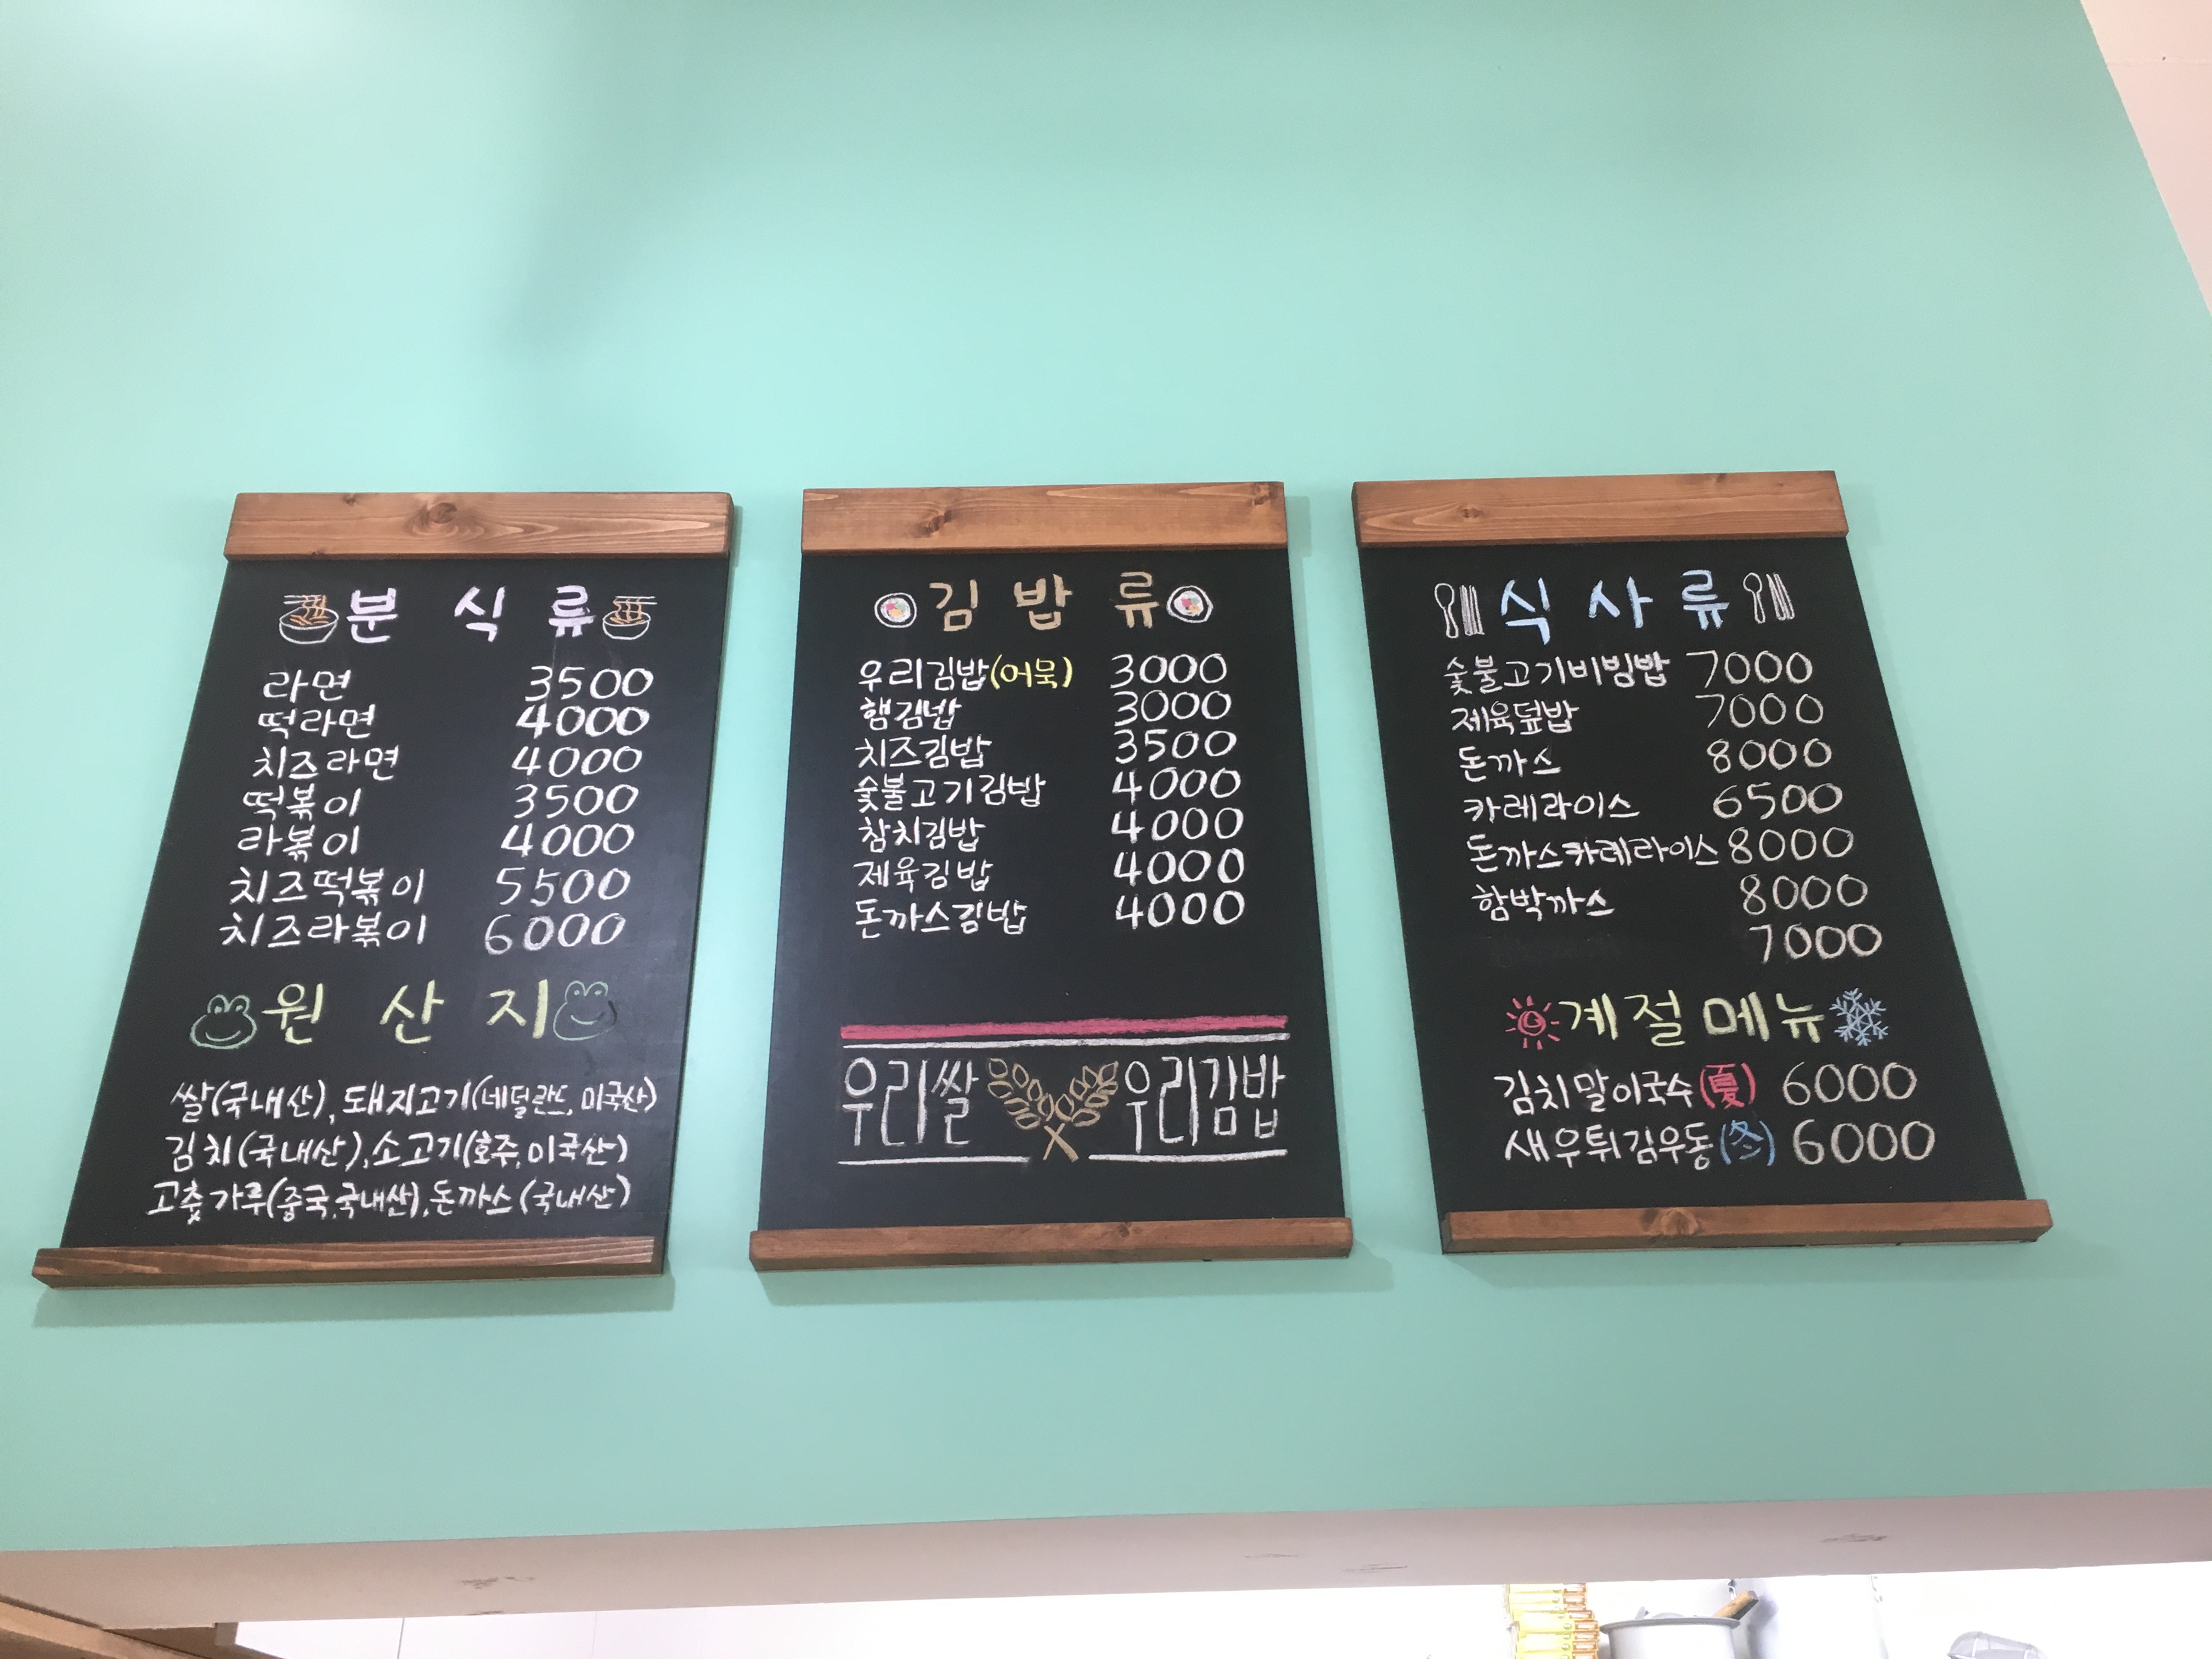 분 식 류
라면 3500
떡라면 4000
치즈라면 4000
떡볶이 3500
라볶이 4000
치즈떡볶이 5500
치즈라볶이 6000
원 산 지
쌀(국내산), 돼지고기(네덜란드, 미국산)
김치(국내산), 소고기(호주, 미국산)
고춧가루(중국,국내산), 돈까스(국내산)
김 밥 류
우리김밥(어묵) 3000
햄김밥 3000
치즈김밥 3500
숯불고기김밥 4000
참치김밥 4000
제육김밥 4000
돈까스김밥 4000
우리쌀 우리김밥
식 사 류
숯불고기비빔밥 7000
제육덮밥 7000
돈까스 8000
카레라이스 6500
돈까스카레라이스 8000
함박까스 8000
7000
계절메뉴
김치말이국수(夏) 6000
새우튀김우동(冬) 6000